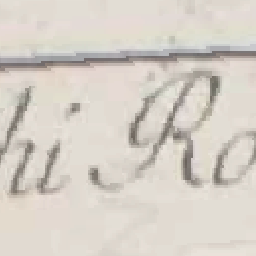 hi Ro